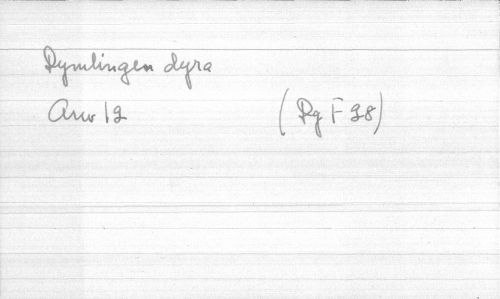 Rymlingen dyra
Arw 12 (Rg F 28)